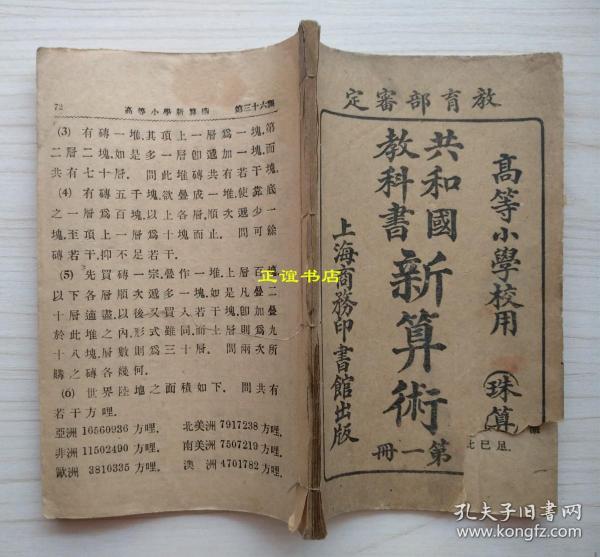 72 高等小學新算術 第三十六課
(3) 有磚一堆.其頂上一層爲一塊.第
二層二塊.如是多一層卽遞加一塊.而
共有七十層. 問此堆磚共有若干塊.
(4) 有磚五千塊.欲疊成一堆.使靠底
之一層爲百塊.以上各層.順次遞少一
塊.至頂上一層爲十塊而止. 問可餘
磚若干.抑不足若干.
(5) 先買磚一宗.疊作一堆.上層百塊
以下各層順次遞多一塊.如是凡疊二
十層適盡.以後又買入若干塊.卽加疊
於此堆之內.形式雖同.而上層則爲九
十八塊.層數則爲三十層. 問兩次所
購之磚各幾何.
(6) 世界陸地之面積如下. 問共有
若干方哩.
亞洲 16560936 方哩. 北美洲 7917238 方哩.
非洲 11502490 方哩. 南美洲 7507219 方哩.
歐洲 3810335 方哩. 澳洲 4701782 方哩.
正谊书店
教育部審定
高等小學校用
珠算
共和國
教科書
新算術
第一冊
上海商務印書館出版
孔夫子旧书网
kongfz.com